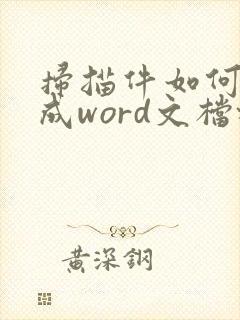 掃描件如何
成word文檔
黃深鋼